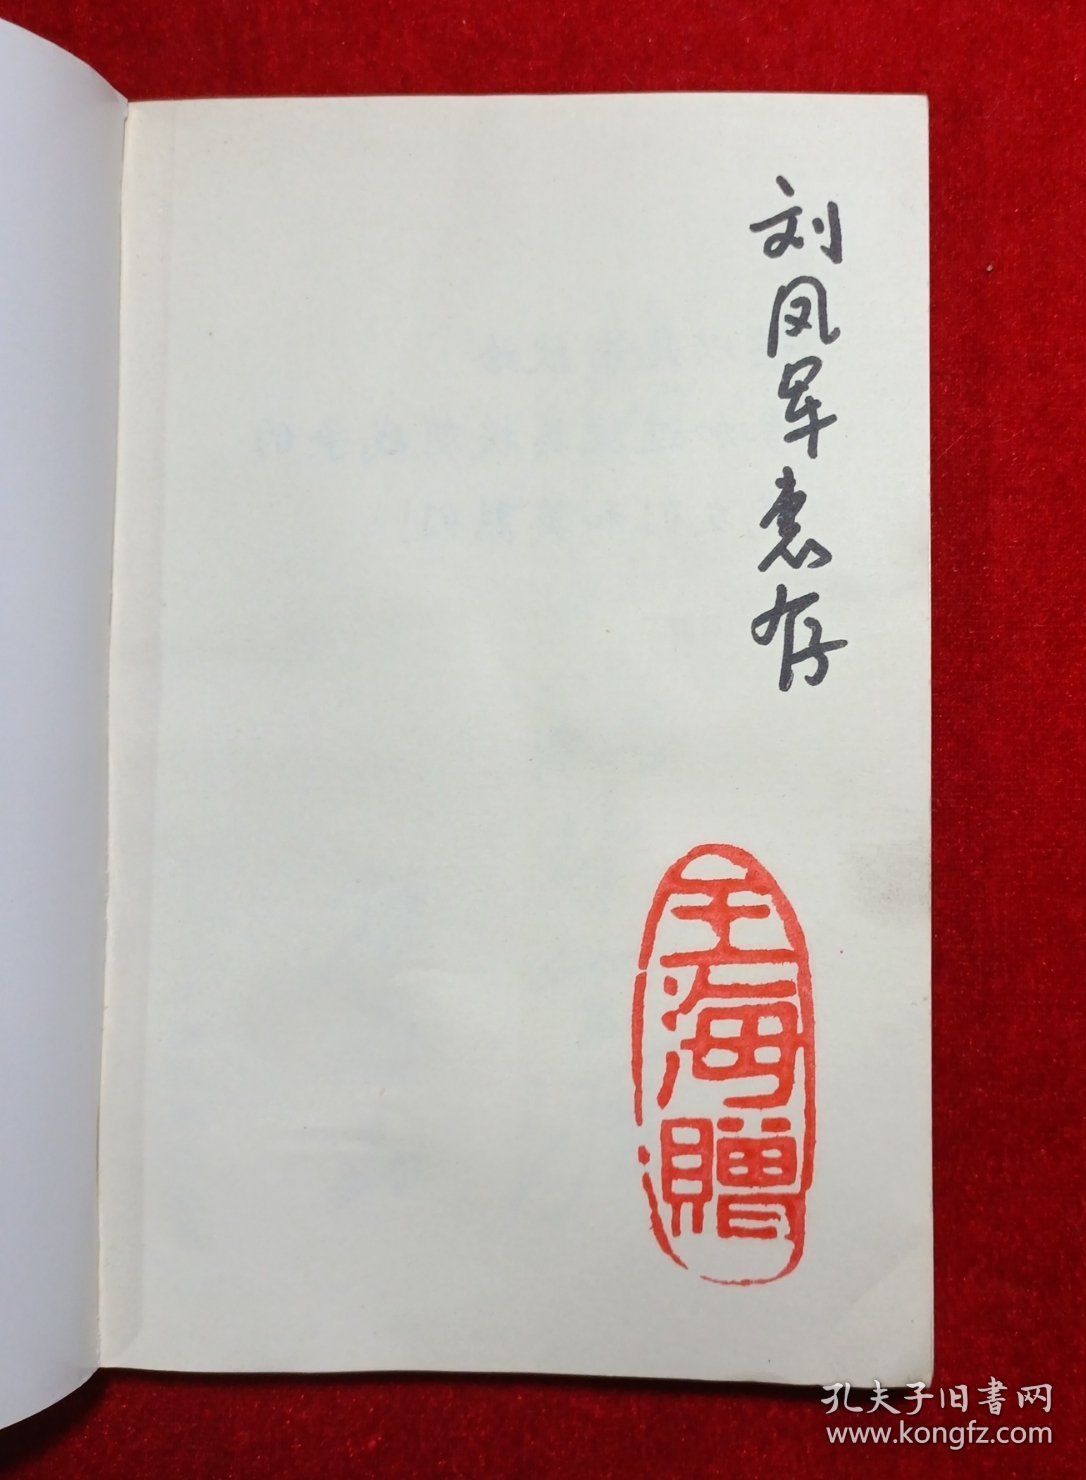 刘凤军惠存
王海赠
孔夫子旧書网
www.kongfz.com